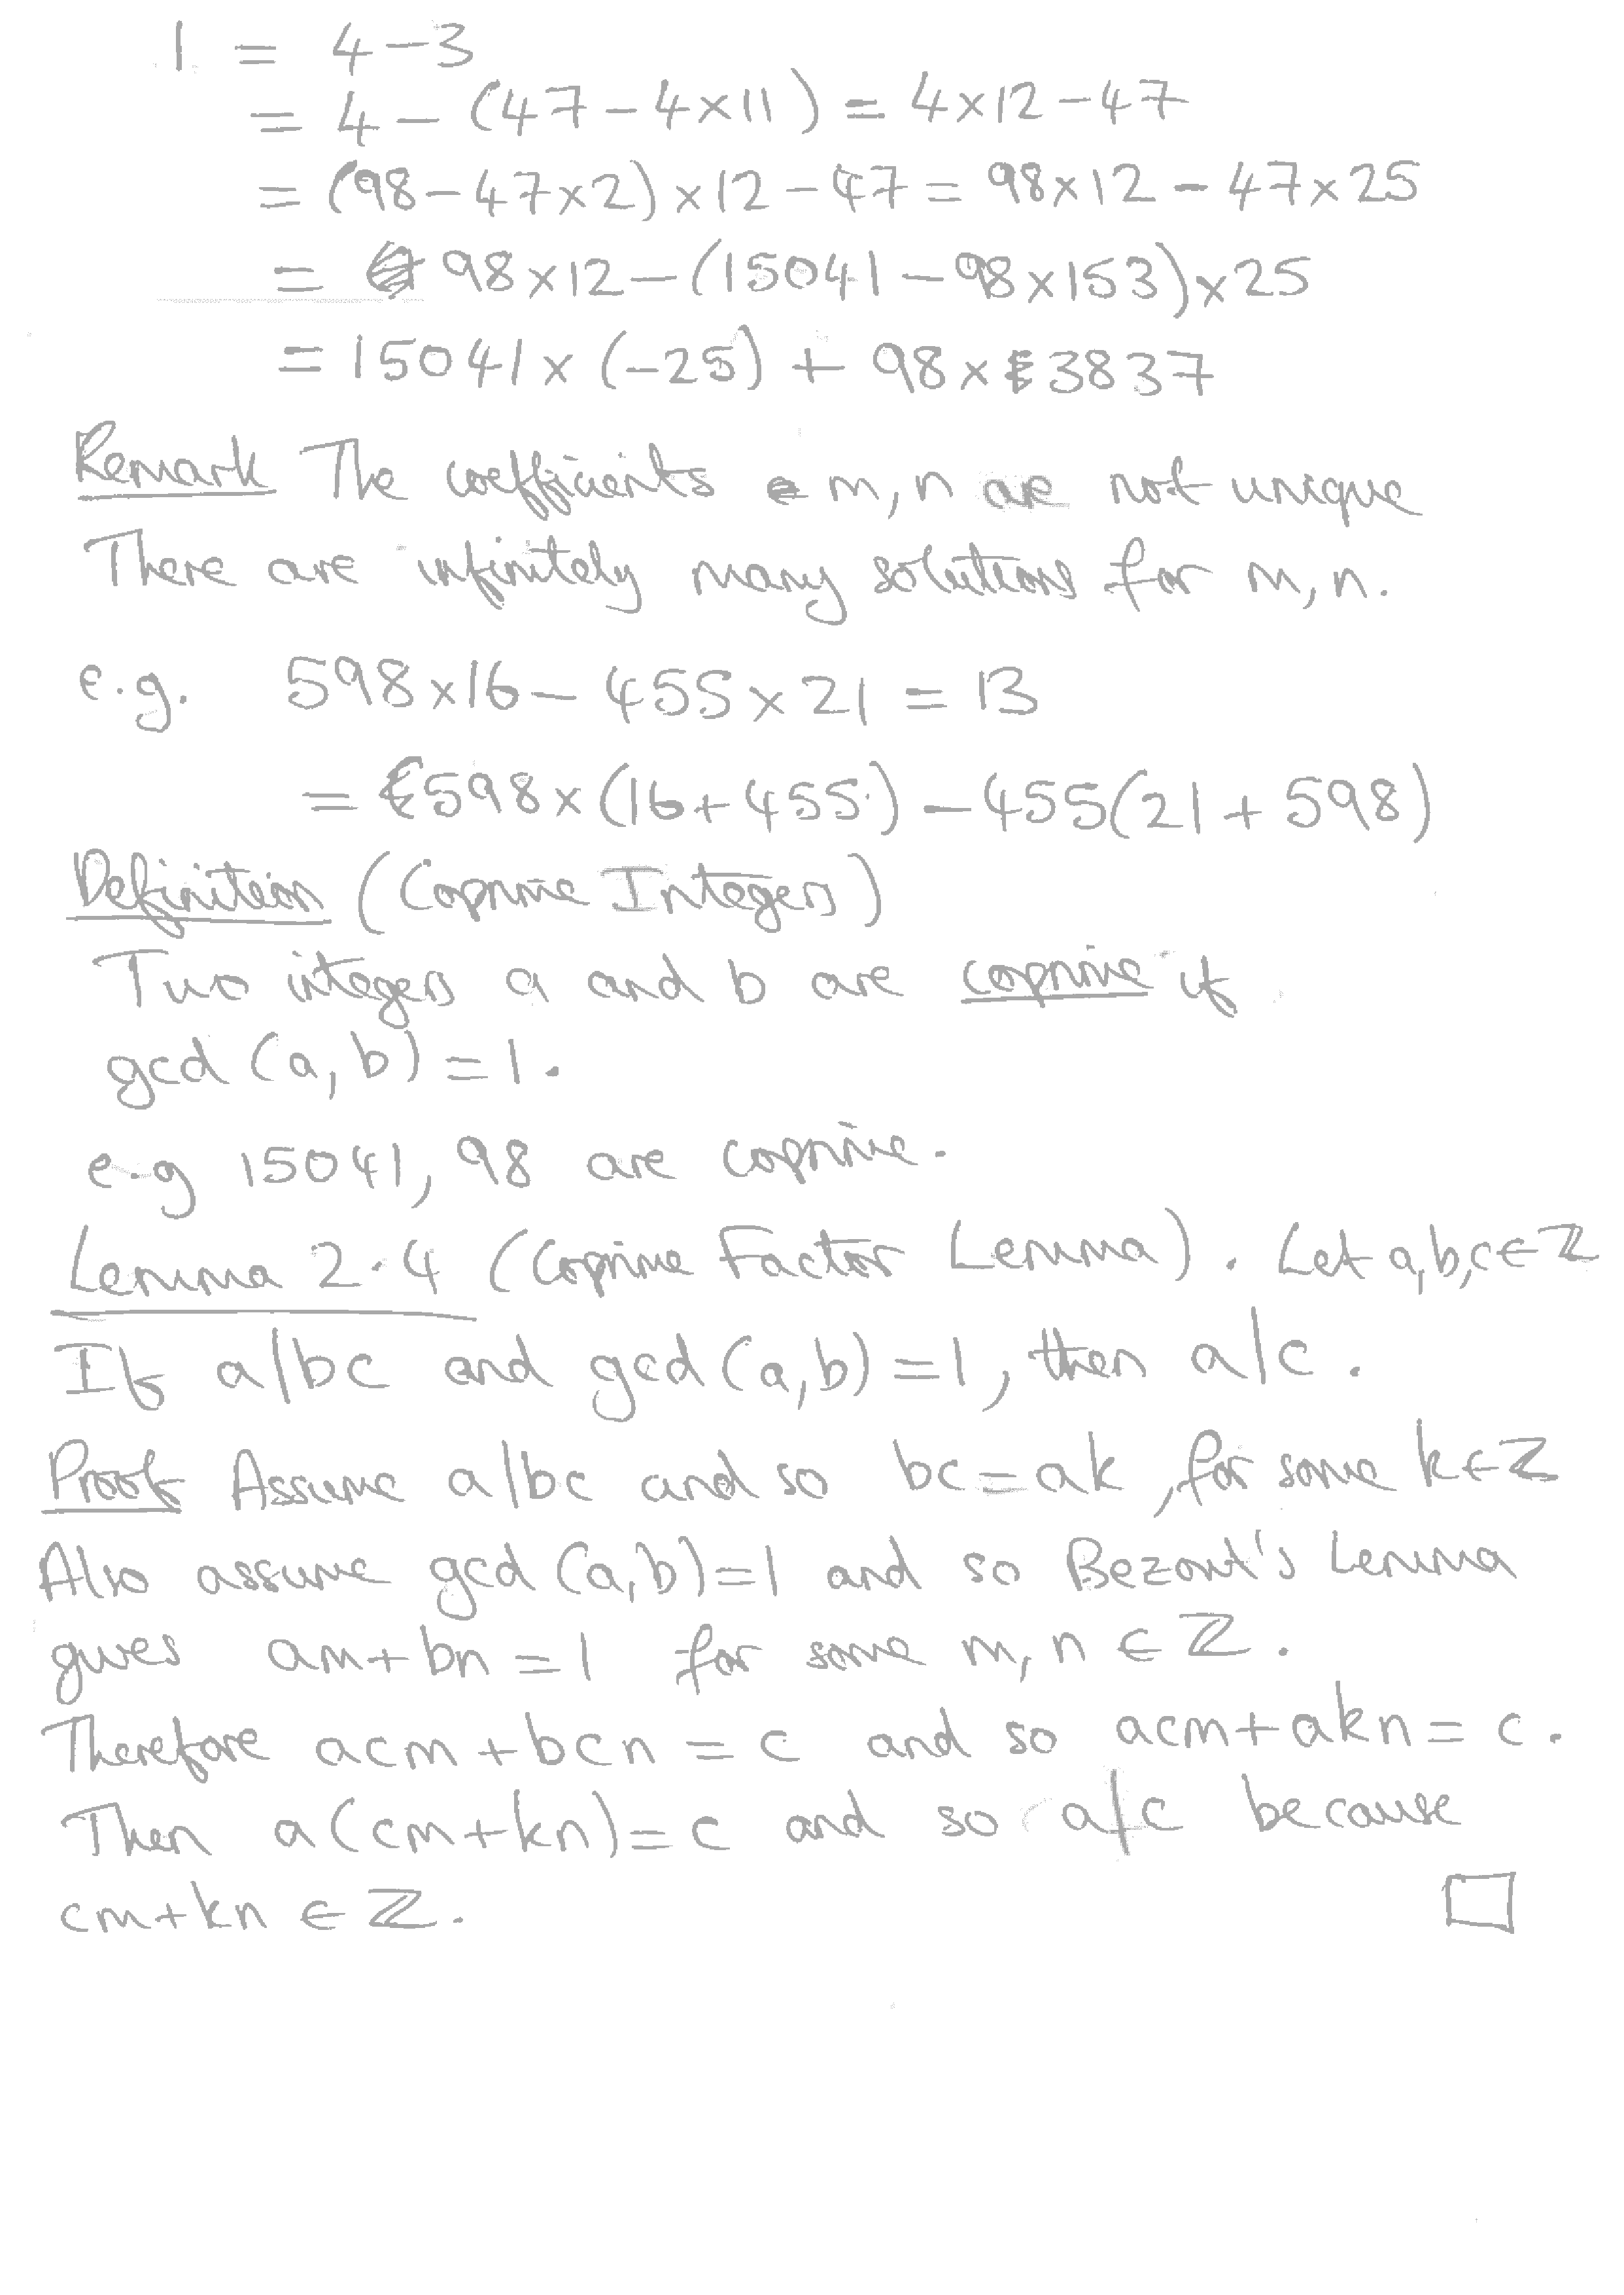 1 = 4-3
= 4 - (47 - 4×11) = 4×12 - 47
= (98 - 47×2) × 12 - 47 = 98×12 - 47×25
= 98×12 - (15041 - 98×153)×25
= 15041 × (-25) + 98 × 3837
Remark The coefficients m, n are not unique
There are infinitely many solutions for m, n.
e.g. 598×16 - 455×21 = 13
= 598×(16+455) - 455(21+598)
Definition (Coprime Integers)
Two integers a and b are coprime if
gcd (a, b) = 1.
e.g 15041, 98 are coprime.
Lemma 2.4 (Coprime Factor Lemma). Let a,b,c∈ℤ
If a/bc and gcd(a,b)=1, then a/c.
Proof Assume a/bc and so bc=ak, for some k∈ℤ
Also assume gcd (a,b)=1 and so Bezout's Lemma
gives am+bn=1 for some m, n ∈ ℤ.
Therefore acm + bcn = c and so acm+akn = c.
Then a(cm+kn)=c and so a|c because
cm+kn ∈ ℤ. □